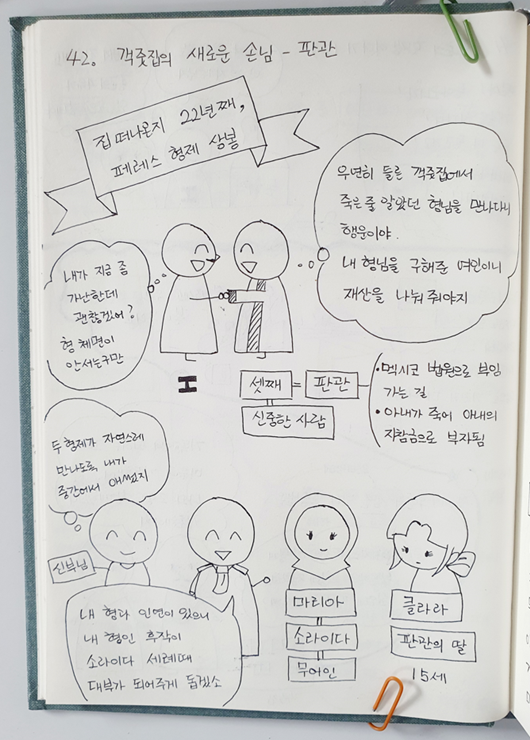 42. 객줏집의 새로운 손님 - 판관
집 떠나온지 22년째,
페레스 형제 상봉
우연히 들른 객줏집에서
죽은 줄 알았던 형님을 만나다니
행운이야.
내 형님을 구해준 여인이니
재산을 나눠 줘야지
내가 지금 좀
가난한데
괜찮겠어?
형 체면이
안서는구만
셋째 = 판관
신중한 사람
• 멕시코 법원으로 부임
가는 길
• 아내가 죽어 아내의
지참금으로 부자됨
두 형제가 자연스레
만나도록 내가
중간에서 애썼지
신부님
내 형과 인연이 있으니
내 형인 후작이
소라이다 세례때
대부가 되어주게 돕겠소
마리아
소라이다
무어인
클라라
판관의 딸
15세